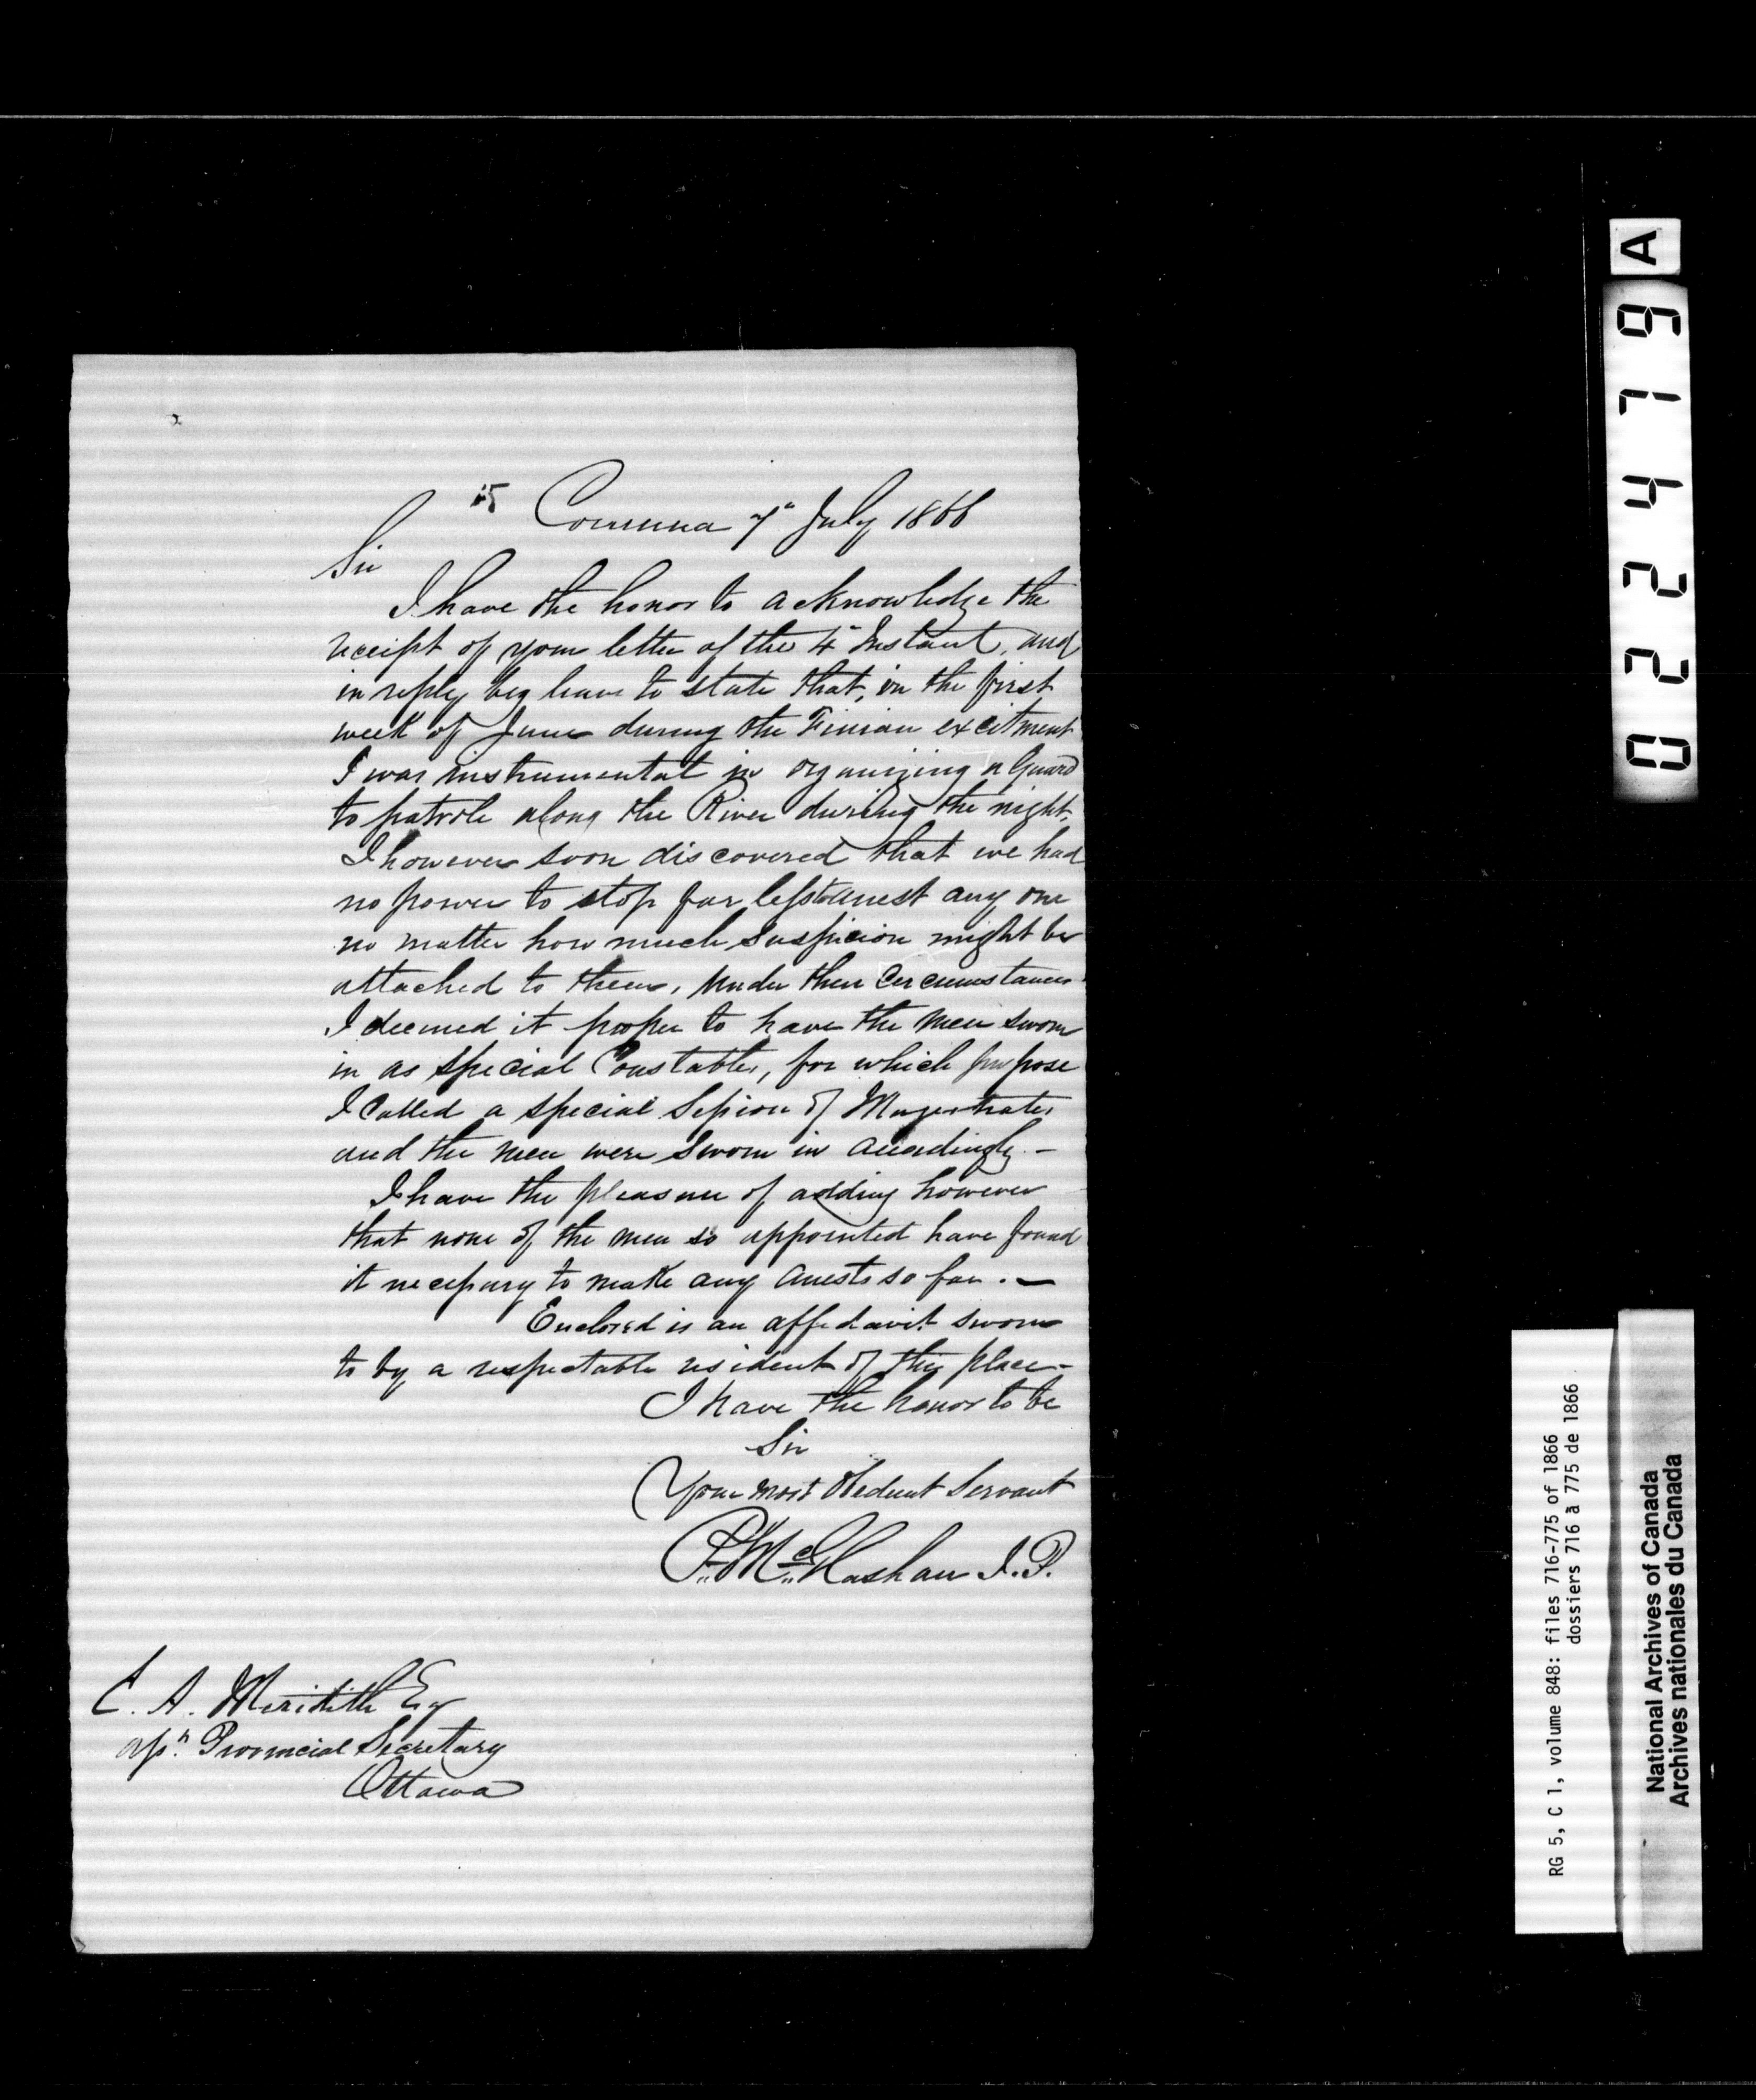 Corunna 7" July 1866
Sir
I have the honor to acknowledge the
receipt of your letter of the 4" Instant, and
in reply beg leave to state that, in the first
week of June during the Finian excitment
I was instrumental in organizing a Guard
to patrole along the River during the night.
I however soon discovered that we had
no power to stop far less to arrest any one
no matter how much suspicion might be
attached to them, Under these Circumstances
I deemed it proper to have the Men sworn
in as Special Constables, for which purpose
I Called a special Session of Magistrates
and the men were Sworn in accordingly. —
I have the pleasure of adding however
that none of the men so appointed have found
it necessary to make any arrests so far. —
Enclosed is an affidavit sworn
to by a respectable resident of this place —
I have the honor to be
Sir
Your most Obedient Servant
P. Mc Glashan J.P.
E. A. Meridith Esq
Asst. Provincial Secretary
Ottawa
022479 A
RG 5, C 1, volume 848: files 716-775 of 1866
dossiers 716 à 775 de 1866
National Archives of Canada
Archives nationales du Canada